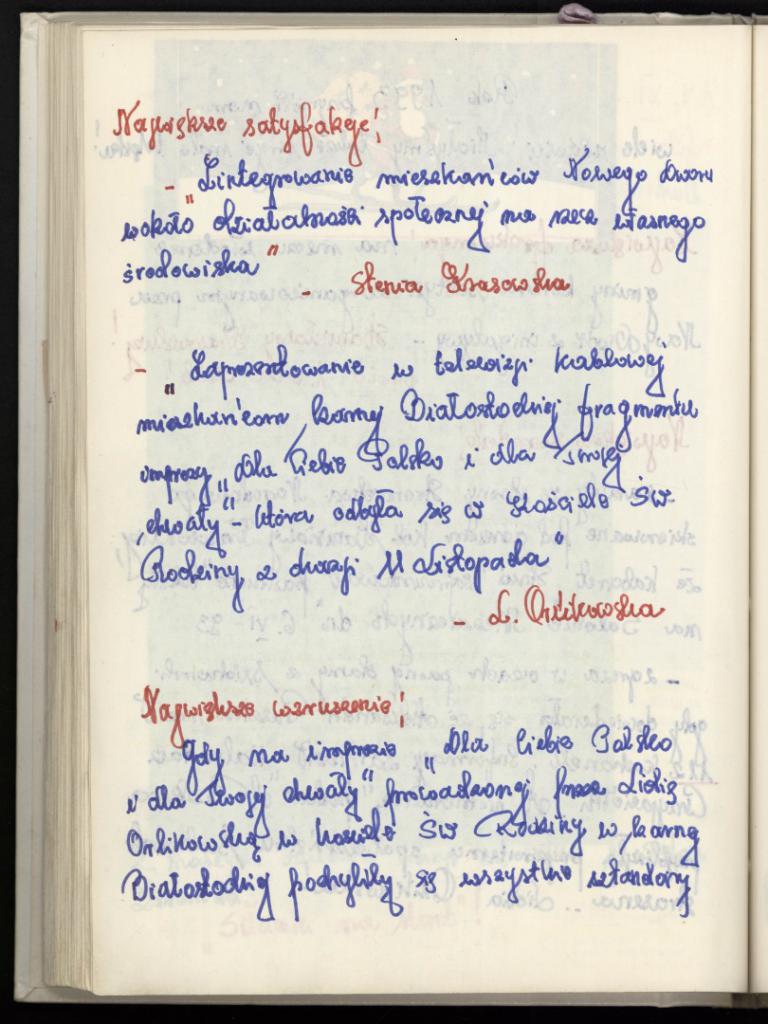 Największe satysfakcje!
- "Zintegrowanie mieszkańców Nowego Dworu
wokoło działalności społecznej na rzecz własnego
środowiska" - Stenia Krasowska
- "Zaprezentowanie w telewizji kablowej
mieszkańcom Karny Białostockiej fragmentu
imprezy „Dla Ciebie Polsko i dla Twojej
chwały" - która odbyła się w Kościele Św.
Rodziny z okazji 11 Listopada"
- L. Orlikowska
Największe wzruszenie!
Gdy na imprezie „Dla Ciebie Polsko
i dla Twojej chwały" prowadzonej przez Lidię
Orlikowską w kościele Św Rodziny w Karnej
Białostockiej pochyliły się wszystkie sztandary